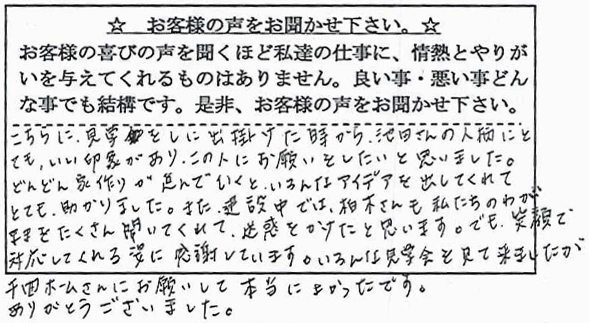 ☆ お客様の声をお聞かせ下さい。☆
お客様の喜びの声を聞くほど私達の仕事に、情熱とやりが
いを与えてくれるものはありません。良い事・悪い事どん
な事でも結構です。是非、お客様の声をお聞かせ下さい。
こちらに、見学をしに出掛けた時から、池田さんの人柄にと
ても、いい印象があり、この人にお願いをしたいと思いました。
どんどん家作りが進んでいくと、いろんなアイデアを出してくれて
とても、助かりました。また、建設中では、柏木さんも私たちのわが
ままをたくさん聞いてくれて、迷惑をかけたと思います。でも、笑顔で
対応してくれる姿に感謝しています。いろんな見学会を見て来ましたが
千田ホームさんにお願いして本当によかったです。
ありがとうございました。